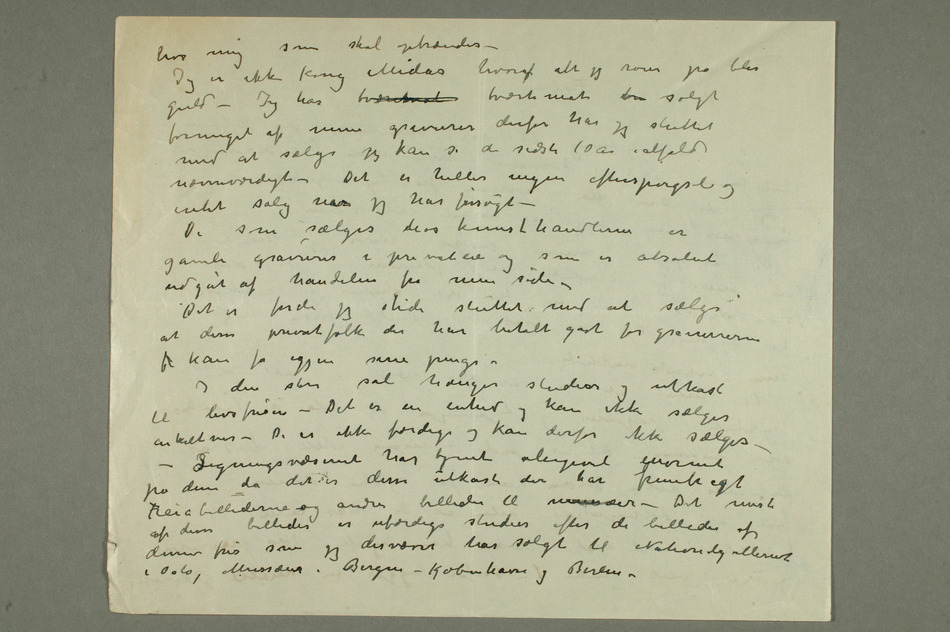 hos mig som skal optrændes –
Jeg er ikke Kong Midas hvoraf alt jeg rører på blir
guld – Jeg har tværtimot tværtimot solgt
formeget af mine gravurer derfor har jeg sluttet
med at sælge jeg kan se de sidste 10 år ialfald
nævneværdigt – Det er heller ingen efterspørgsel og
intet salg når jeg har forsøgt –
De som sælges hos kunsthandlerne er
gamle gravurer i privateie og som er absolut
udgåt af handelen fra min side –
Det er fordi jeg selv sluttet med at sælge
at disse privatfolk der har betalt godt for gravurerne
kan få igjen sine penge –
I den store sal hænger studier og utkast
til livsfrisen – Det er en enhed og kan ikke sælges
enkeltvis – De er ikke færdige og kan derfor ikke sælges –
– Ligningsvæsenet har tjent alligevel enormt
på dem da det er disse utkast der har frembragt
Freiabillederne og andre billeder til museer – Det meste
af disse billeder er uferdige studier efter de billeder af
denne frise som jeg desværre har solgt til Nationalgalleriet
i Oslo, Museer i Bergen – København og Berlin –